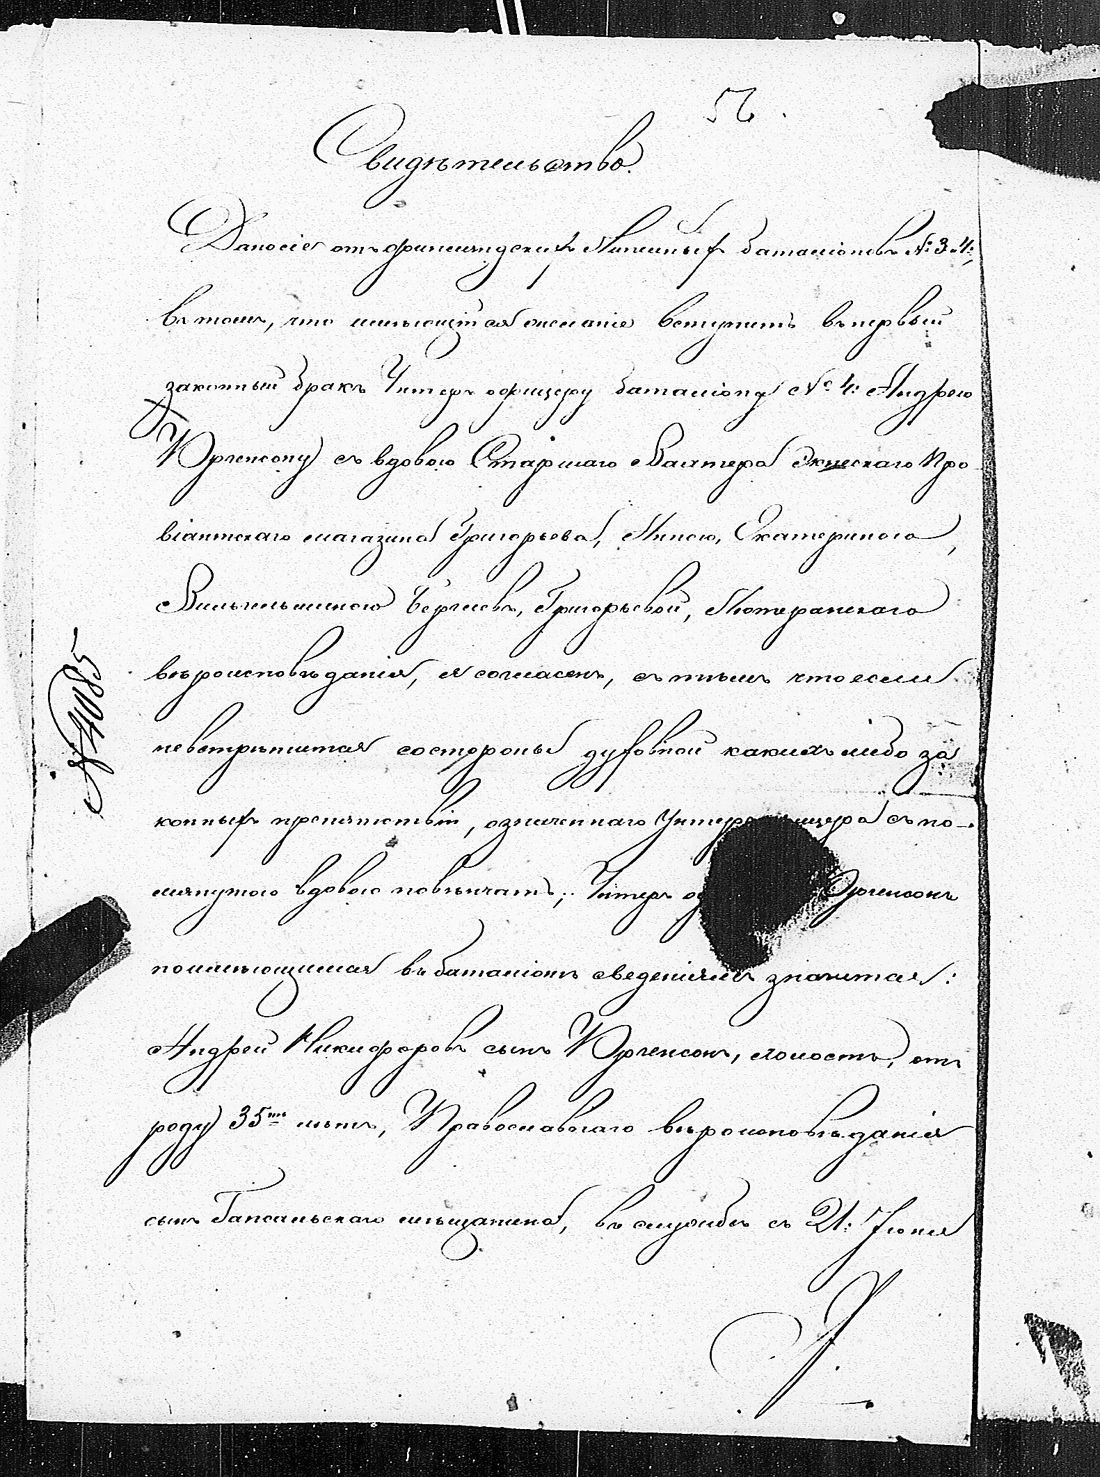 56.
Свидѣтельство.
Дано сіе отъ финляндскихъ Линейныхъ баталіоновъ №: 3 и 4:
въ томъ, что имѣющійся желаніе вступить въ первый
законный бракъ Унтеръ офицеру баталіона № 4: Андрею
Юргенсону съ вдовою Старшаго Вахтера Экнескаго Про
віантскаго магазина Григорьева, Анною, Екатериною,
Вильгельминою Григорьевой, Лютеранскаго
вѣроисповѣданія, я согласенъ, съ тѣмъ что если
невстрѣтится состороны духовной какихъ либо за
конныхъ препятствій, означеннаго Унтеръ офицера съ по-
мянутою вдовою повѣнчать; Унтеръ Юргенсонъ
поимѣющимся въ баталіонѣ сведеніямъ значится:
Андрей Никифоровъ сынъ Юргенсонъ, холостъ, отъ
роду 35ти лѣтъ, Православнаго вѣроисповѣданія
сынъ Гапсальскаго мѣщанина, въ службѣ съ 21: Іюня
№ 4085